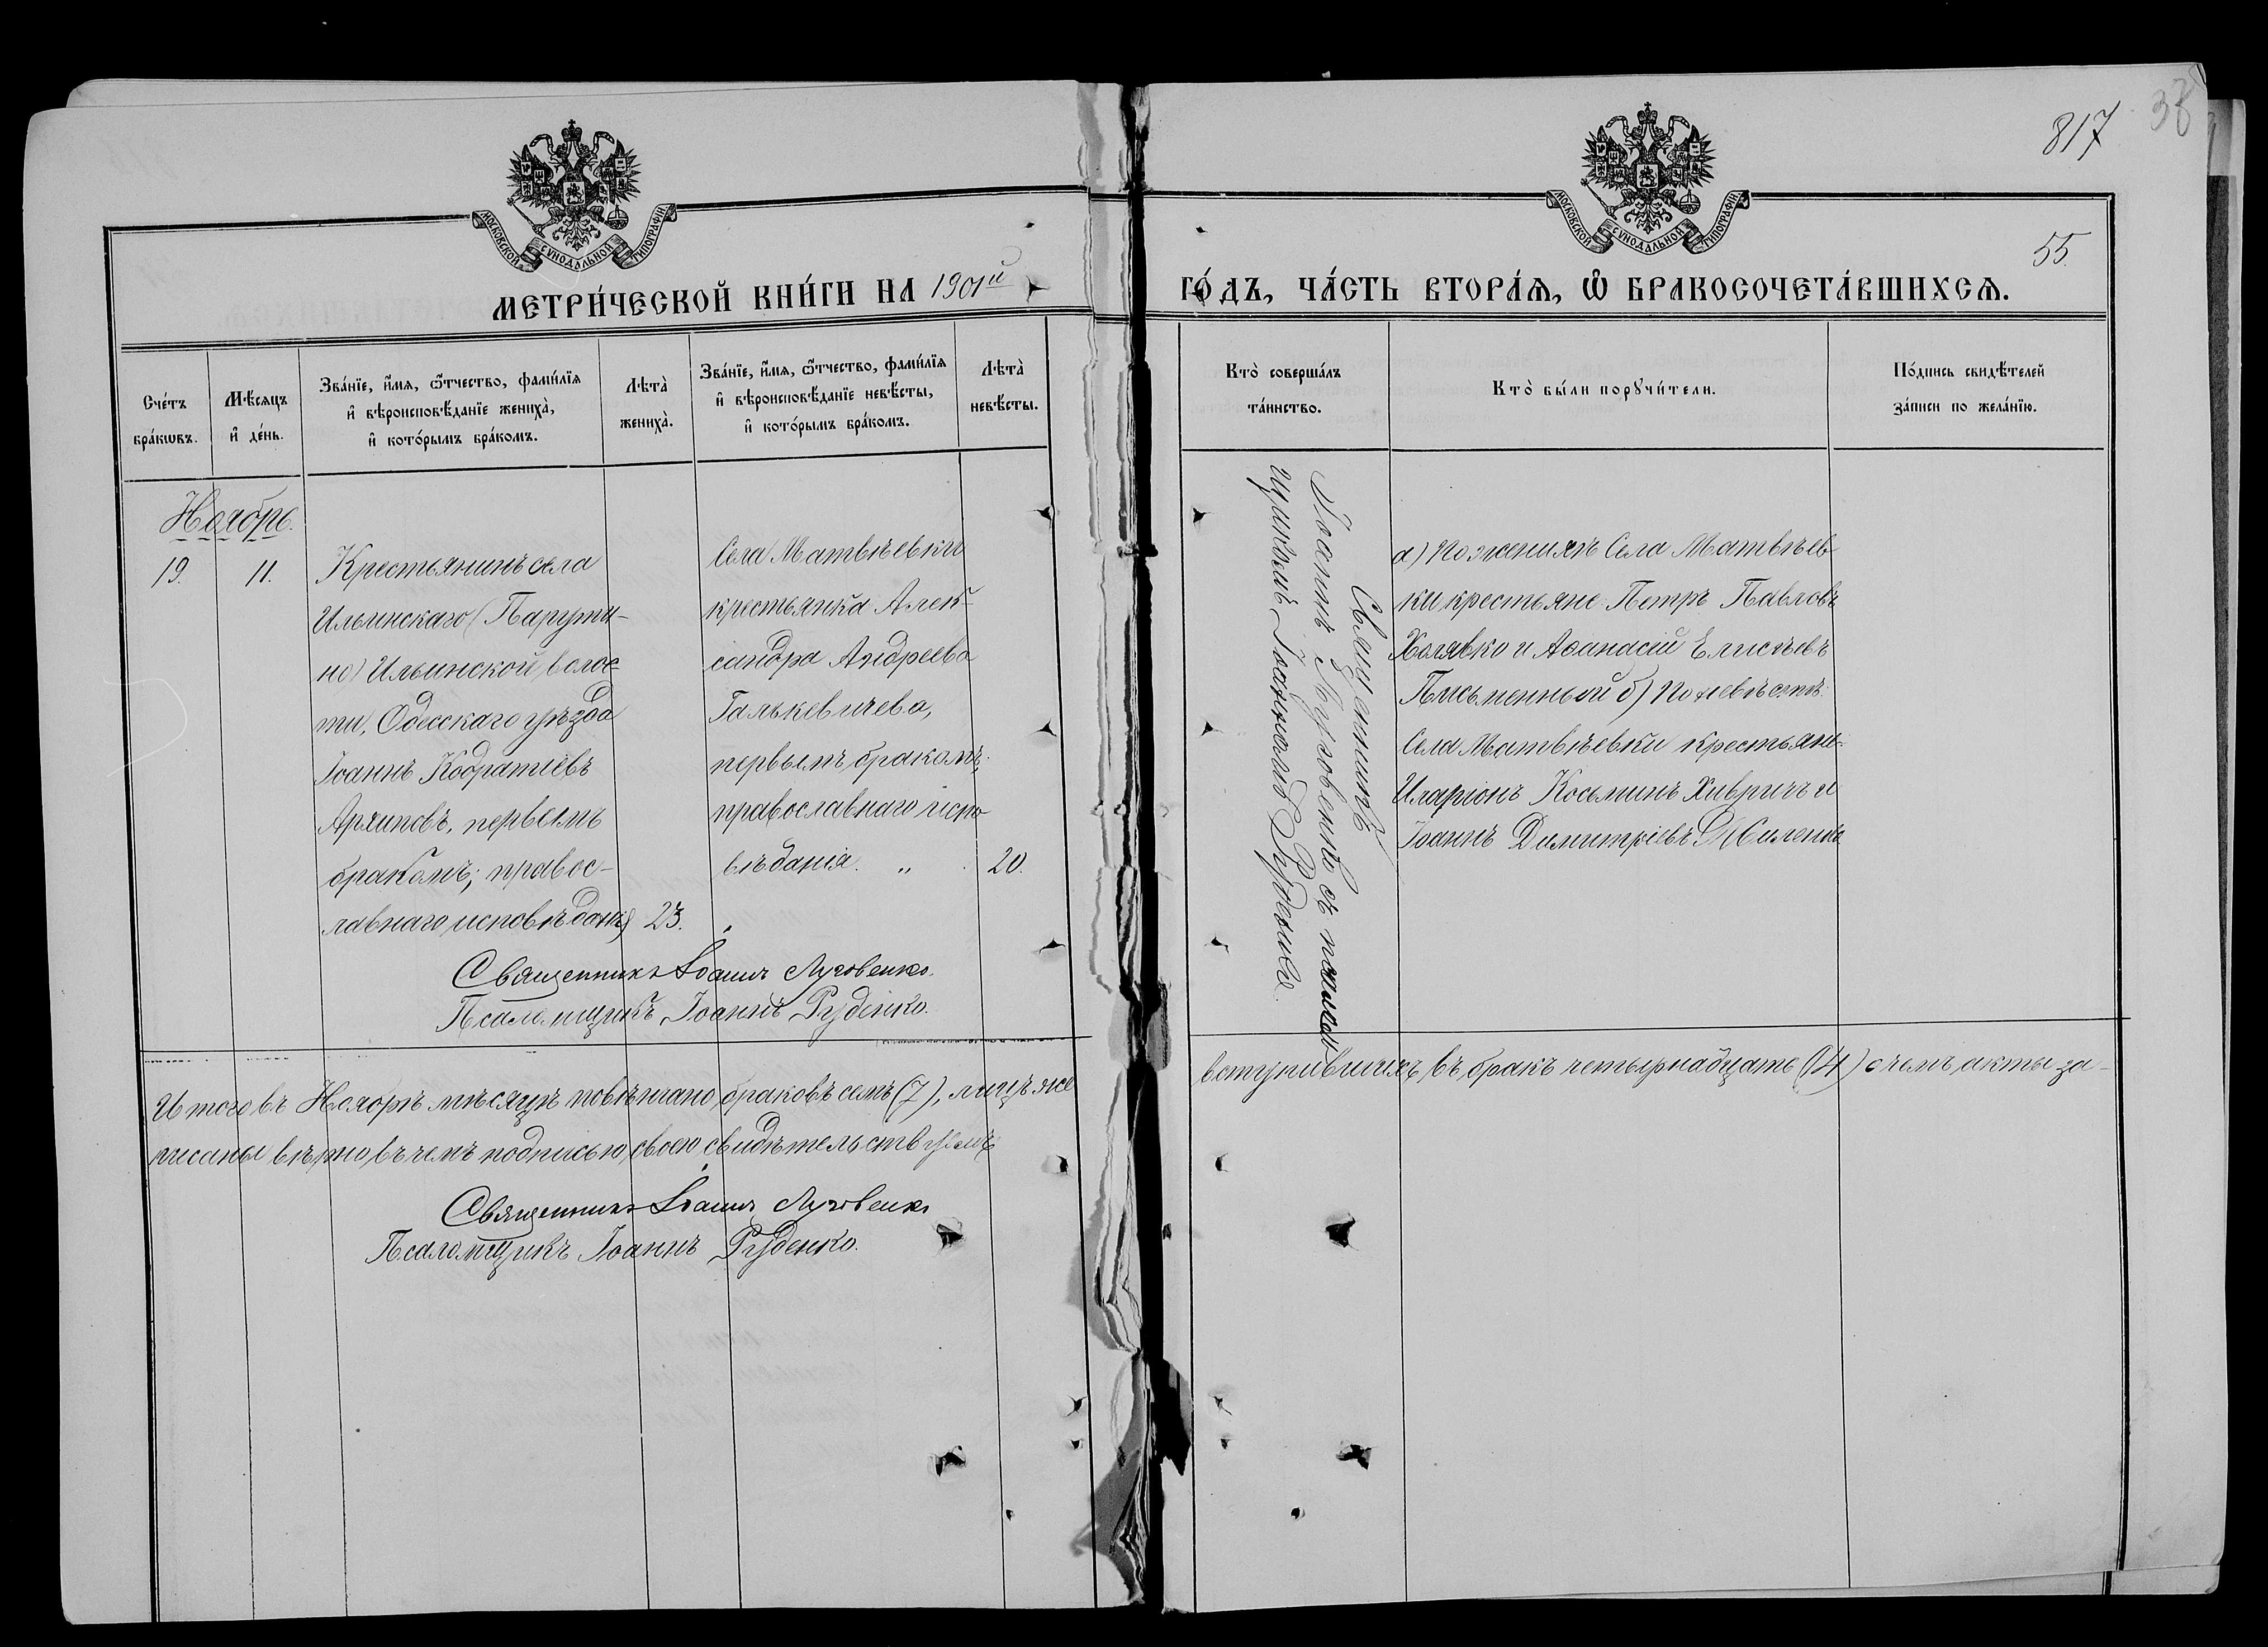 817
38
МОСКОВСКОЙ СѴНОДАЛЬНОЙ ТИПОГРАФІИ
МОСКОВСКОЙ СѴНОДАЛЬНОЙ ТИПОГРАФІИ
55.
МЕТРИ́ЧЕСКОЙ КНИ́ГИ НА 1901й
ГО́ДЪ, ЧА́СТЬ ВТОРА́Я, Ѡ БРАКОСОЧЕТА́ВШИХСЯ.
Сче́тъ бра́кѡвъ.
Мѣ́сяцъ и де́нь.
Зва́нїе, и́мя, ѻ҆́тчество, фами́лїя
и вѣроисповѣ́данїе жениха̀,
и кото́рымъ бра́комъ.
Лѣта̀ жениха̀.
Зва́нїе, и́мя, ѻ҆́тчество, фами́лїя
и вѣроисповѣ́данїе невѣ́сты,
и кото́рымъ бра́комъ.
Лѣта̀ невѣ́сты.
Кто̀ соверша́лъ та́инство.
Кто̀ бы́ли порꙋчи́тели.
По́дпись свидѣ́телей
за́писи по жела́нїю.
Ноябрь.
19.
11.
Крестьянинъ села
Ильинскаго (Парути-
но) Ильинской волос-
ти, Одесскаго уѣзда
Іоаннъ Кодратіевъ
Архиповъ, первымъ
бракомъ; правос-
лавнаго исповѣданія
23.
Села Матвѣевки
крестьянка Алек-
сандра Андреева
Галькевичева,
первымъ бракомъ,
православнаго испо-
вѣданія. „
20.
Священникъ
Іоаннъ Луговенко съ псалом-
щикомъ Іоанномъ Руденко.
а) По женихѣ Села Матвѣев-
ки крестьяне Петръ Павловъ
Холявко и Аѳанасій Елисѣевъ
Письменный б) По невѣстѣ:
Села Матвѣевки крестьяне
Иларіонъ Косьминъ Хивричъ и
Іоаннъ Димитріевъ
Священникъ Іоаннъ Луговенко.
Псаломщикъ Іоаннъ Руденко.
Итого въ Ноябрѣ мѣсяцѣ повѣнчано браковъ семь (7), лицъ же
вступившихъ въ бракъ четырнадцать (14) о чемъ акты за-
писаны вѣрно въ чемъ подписью своею свидѣтельствуемъ
Священникъ Іоаннъ Луговенко
Псаломщикъ Іоаннъ Руденко.